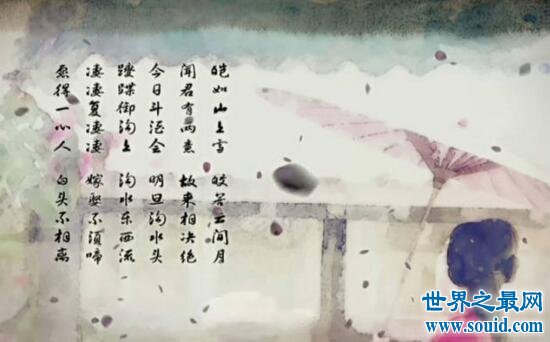 皑如山上雪 皎若云间月
闻君有两意 故来相决绝
今日斗酒会 明旦沟水头
躞蹀御沟上 沟水东西流
凄凄复凄凄 嫁娶不须啼
愿得一心人 白头不相离
世界之最网
www.souid.com